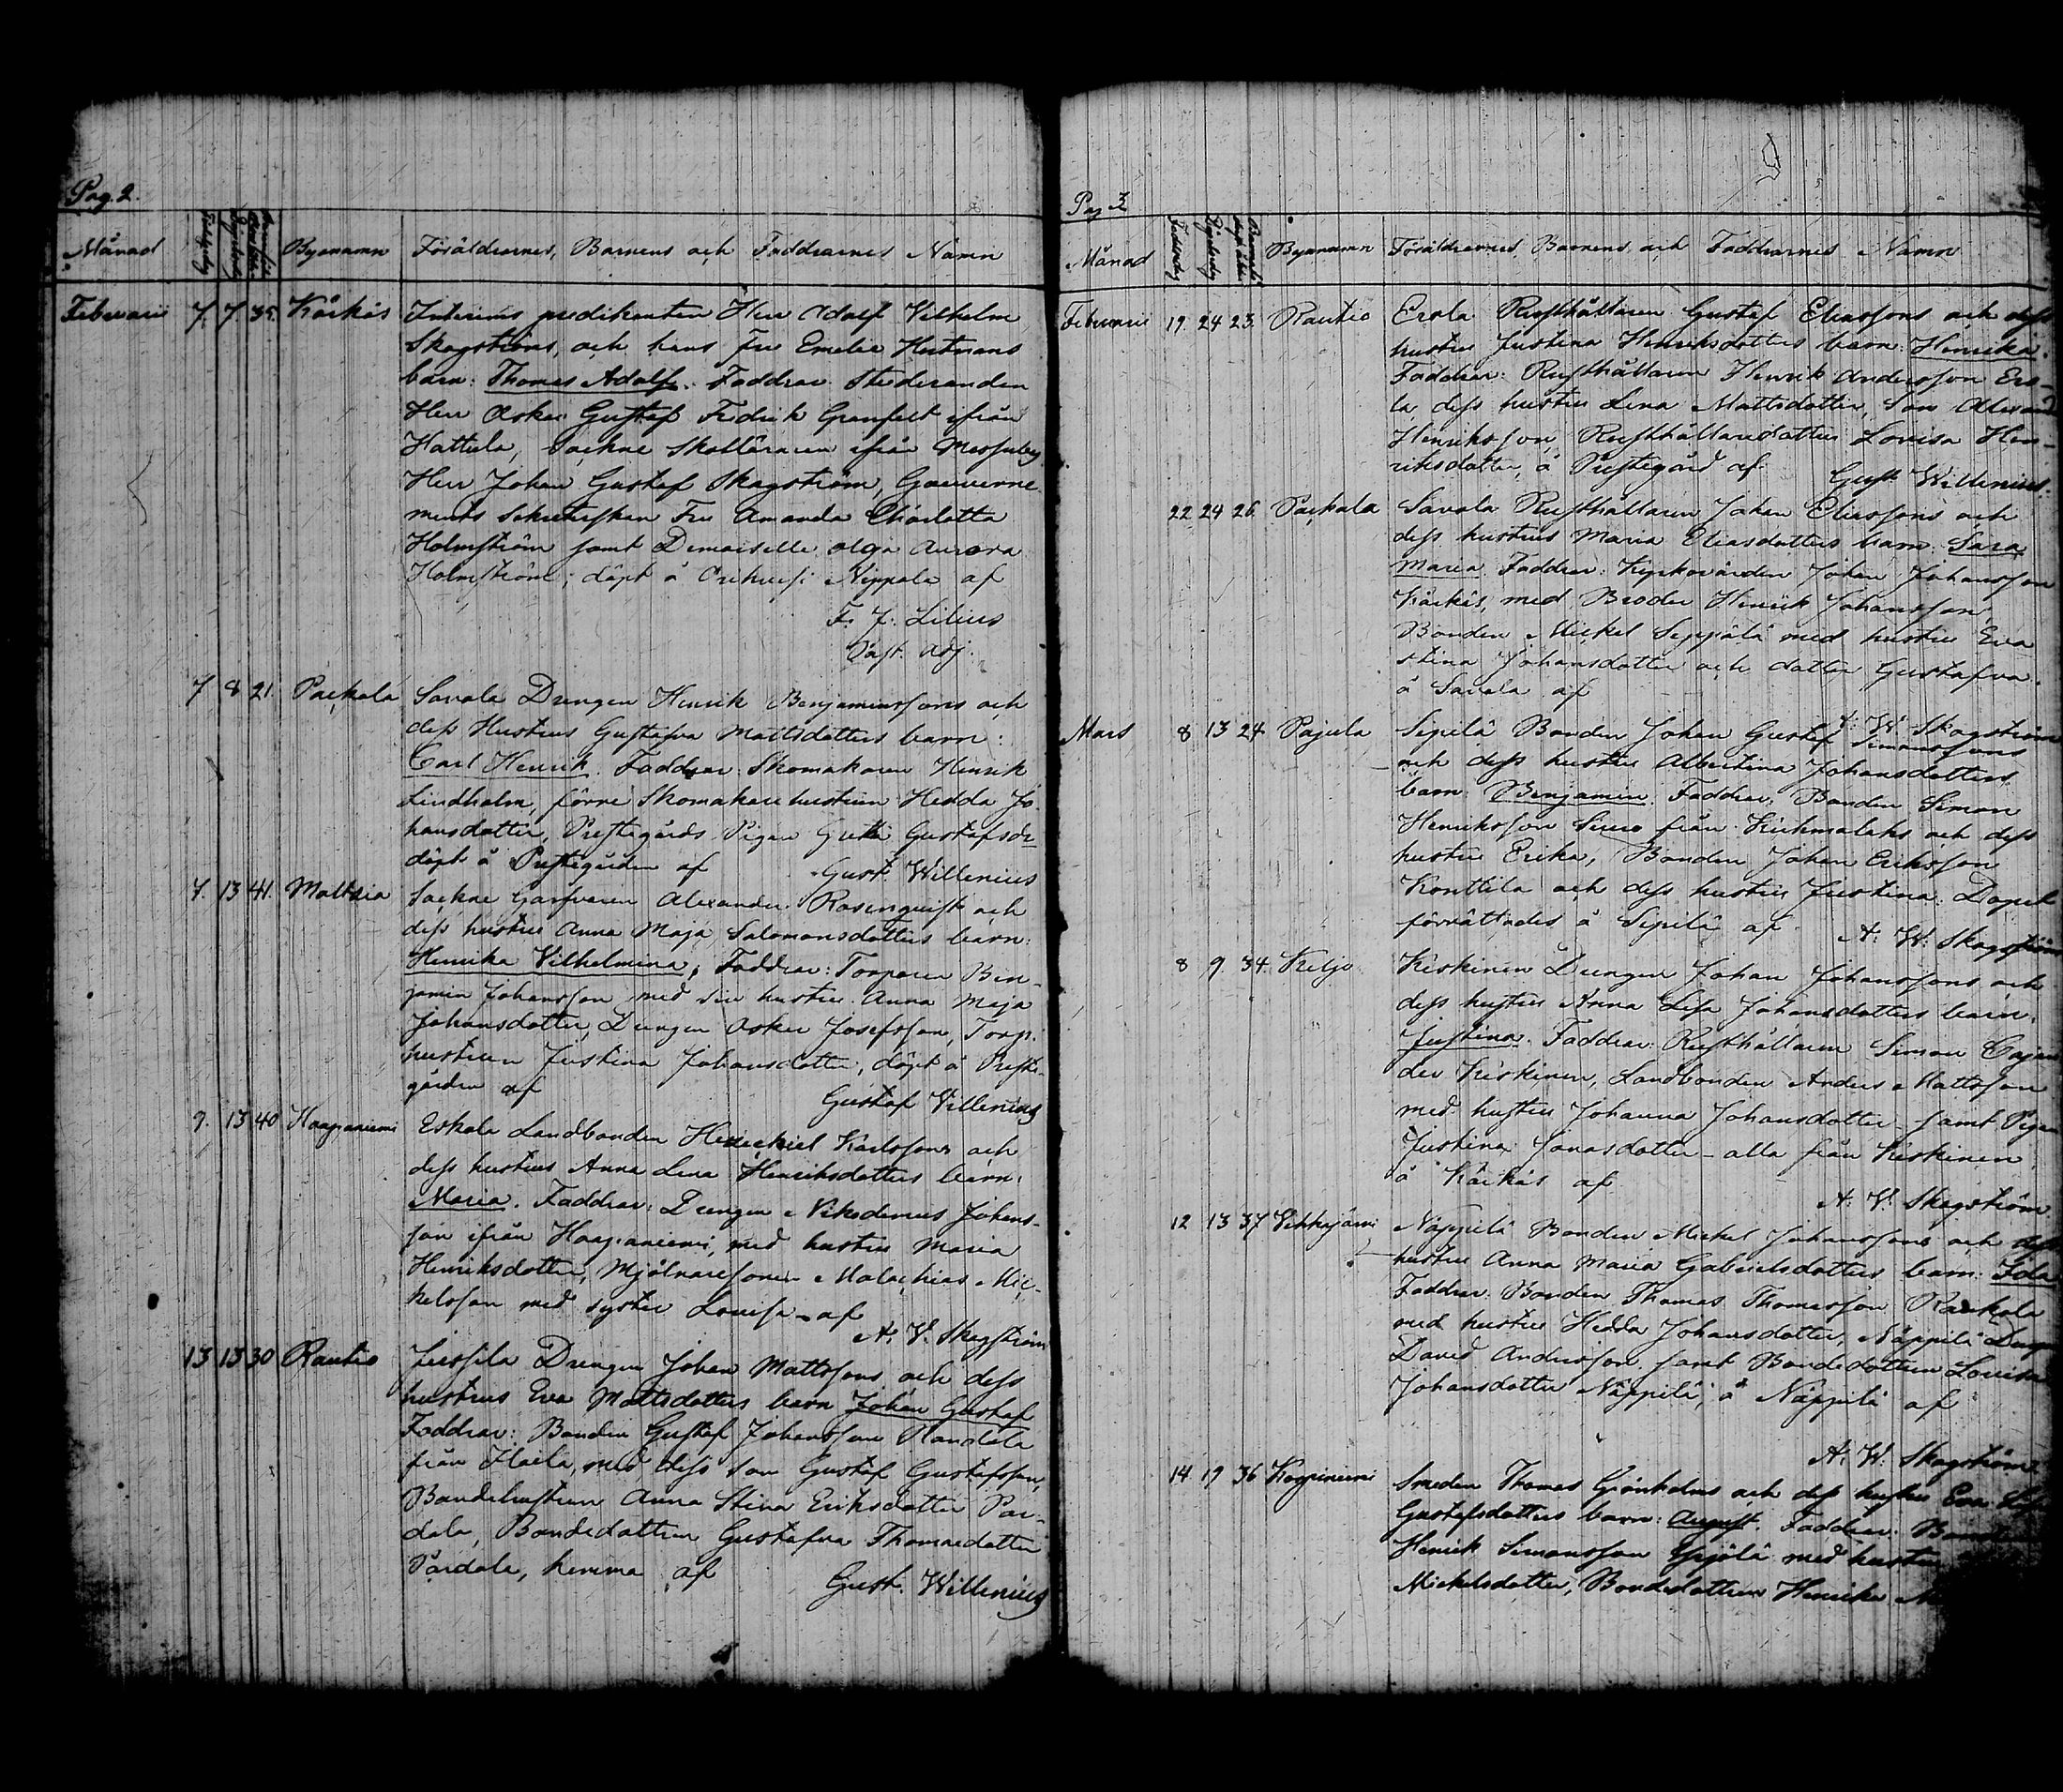 Pag. 2.
Månad Födelsedag Byanamn Föräldrarnes, Barnens och Faddrarnes Namn
Februarii 7. 7. 35. Kärkäs Interims predikanten Herr Adolf Vilhelm
Skogströms, och hans Fru Emelie
barn: Thomas Adolf. Faddrar Studeranden
Herr Oskar Gustaf Fredrik Granfelt ifrån
Hattula, Sockne Skolläraren ifrån
Herr Johan Gustaf Skogström, Gouverne
ments Sekreterskan Fru Amanda Charlotta
Holmström samt Demoiselle Olga Aurora
Holmström; döpt å Nippala af
F. J. Lilius
Past. adj.
7 8 21. Packala Savala Drengen Henrik Benjaminssons och
dess Hustrus Gustafva Mattsdotters barn:
Carl Henrik. Faddrar: Skomakaren Henrik
Lindholm, förre Skomakare hustrun Hedda Jo
hansdotter, Prestegårds Pigan Gustafsdr
döpt å Prestegården af Gust. Willenius
7. 13 41. Mattsia Sockne Garfvaren Alexander Rosenqvist och
dess hustrus Anna Maja Salomonsdotters barn:
Henrika Vilhelmina; Faddrar: Torparen Ben-
jamin Johansson med sin hustru Anna Maja
Johansdotter, Drengen Oskar Josefsson, Torp.
hustrun Justina Johansdotter, döpt å Preste-
gården af Gustaf Villenius
9. 13 40 Haapaniemi Eskola Landbonden Karlssons och
dess hustrus Anna Lena Henriksdotters barn:
Maria. Faddrar: Drengen Nikodemus Johans-
son ifrån Haapaniemi, med hustru Maria
Henriksdotter, Mjölnaresonen Malachias Mic-
kelsson med syster Lovisa - af
A. V. Skogström
13 13 30 Rautio Drengen Johan Mattssons och dess
hustrus Eva Mattsdotters barn Johan Gustaf
Faddrar: Bonden Gustaf Johansson
från med dess son Gustaf Gustafsson,
Bondehustrun Anna Stina Eriksdotter Par-
dala, Bondedottren Gustafva Thomasdotter
Pardala, hemma af Gust. Willenius
Pag 3
Månad Födelsedag Byanamn Föräldrarnes, Barnens och Faddrarnes Namn
Februarii 17. 24 23. Rautio Erola Rusthållaren Gustaf Eliassons och dess
hustrus Justina Henriksdotters barn: Henrika.
Faddrar: Rusthållaren Henrik Andersson Ero-
la dess hustru Lena Mattsdotter, Son
Henriksson, Rusthållaredotter Lovisa Hen-
riksdotter, å Prestegård af Gust Willenius.
22 24 26. Packala Savala Rusthållaren Johan Eliassons och
dess hustrus Maria Eliasdotters barn: Sara
Maria. Faddrar: Kyrkovärden Johan Johansson
Kärkäs, med Broder Henrik Johansson,
Bonden Mickel Seppälä med hustru Eva
Stina Johansdotter och dotter Gustafva.
å Savala af
A. W. Skogström
Mars 8 13 24 Pajula Sipilä Bonden Johan Gustaf Simonssons
och dess hustrus Albertina Johansdotters
barn: Benjamin. Faddrar: Bonden Simon
Henriksson från och dess
hustru Erika, Bonden Johan Eriksson
Konttila och dess hustru Justina. Dopet
förrättades å Sipilä af A. W. Skogström
8 9. 34. Keljo Keskinen Drengen Johan Johanssons och
dess hustrus Anna Lisa Johansdotters barn:
Justina. Faddrar: Rusthållaren Simon Cajan
der Keskinen, Landbonden Anders Mattsson
med hustru Johanna Johansdotter samt Pigan
Justina Jonasdotter - alla från Keskinen,
å Kärkäs af
A. V. Skogström
12 13 37 Vehkajärvi Näppilä Bonden Mickel Johanssons och dess
hustrus Anna Maria Gabrielsdotters barn: Ida
Faddrar: Bonden Thomas Thomasson
med hustru Hedda Johansdotter, Näppilä Dreng
David Andersson samt Bondedottren Lovisa
Johansdotter Näppilä; å Näppilä af
A. W. Skogström.
14 19 36 Smeden Thomas Grönholms och dess hustrus Eva
Gustafsdotters barn: August. Faddrar:
Henrik Simonsson med hustru
Mickelsdotter, Bondedottren Henrika